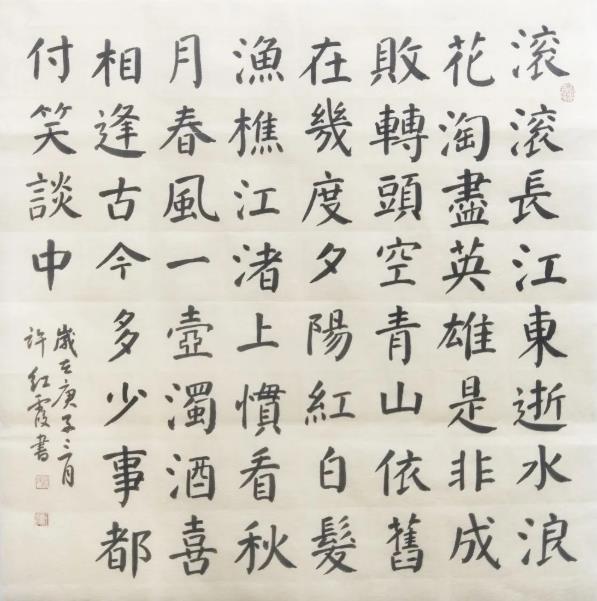 滚滚長江東逝水浪
花淘盡英雄是非成
敗轉頭空青山依舊
在幾度夕陽紅白髮
漁樵江渚上慣看秋
月春風一壺濁酒喜
相逢古今多少事都
付笑談中
歲在庚子三月
許红霞書